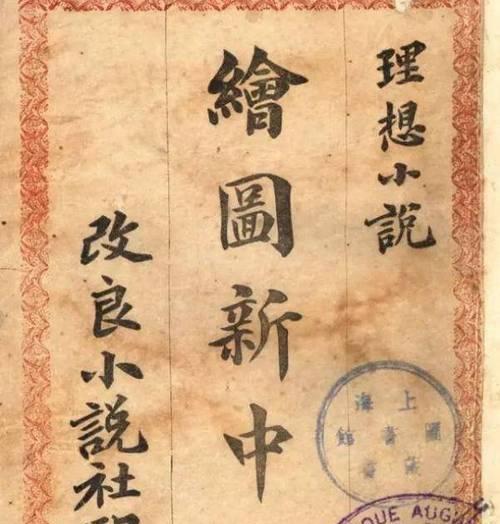 理想小説
繪圖新中
改良小説社
上海圖書館藏書
QUE AUG